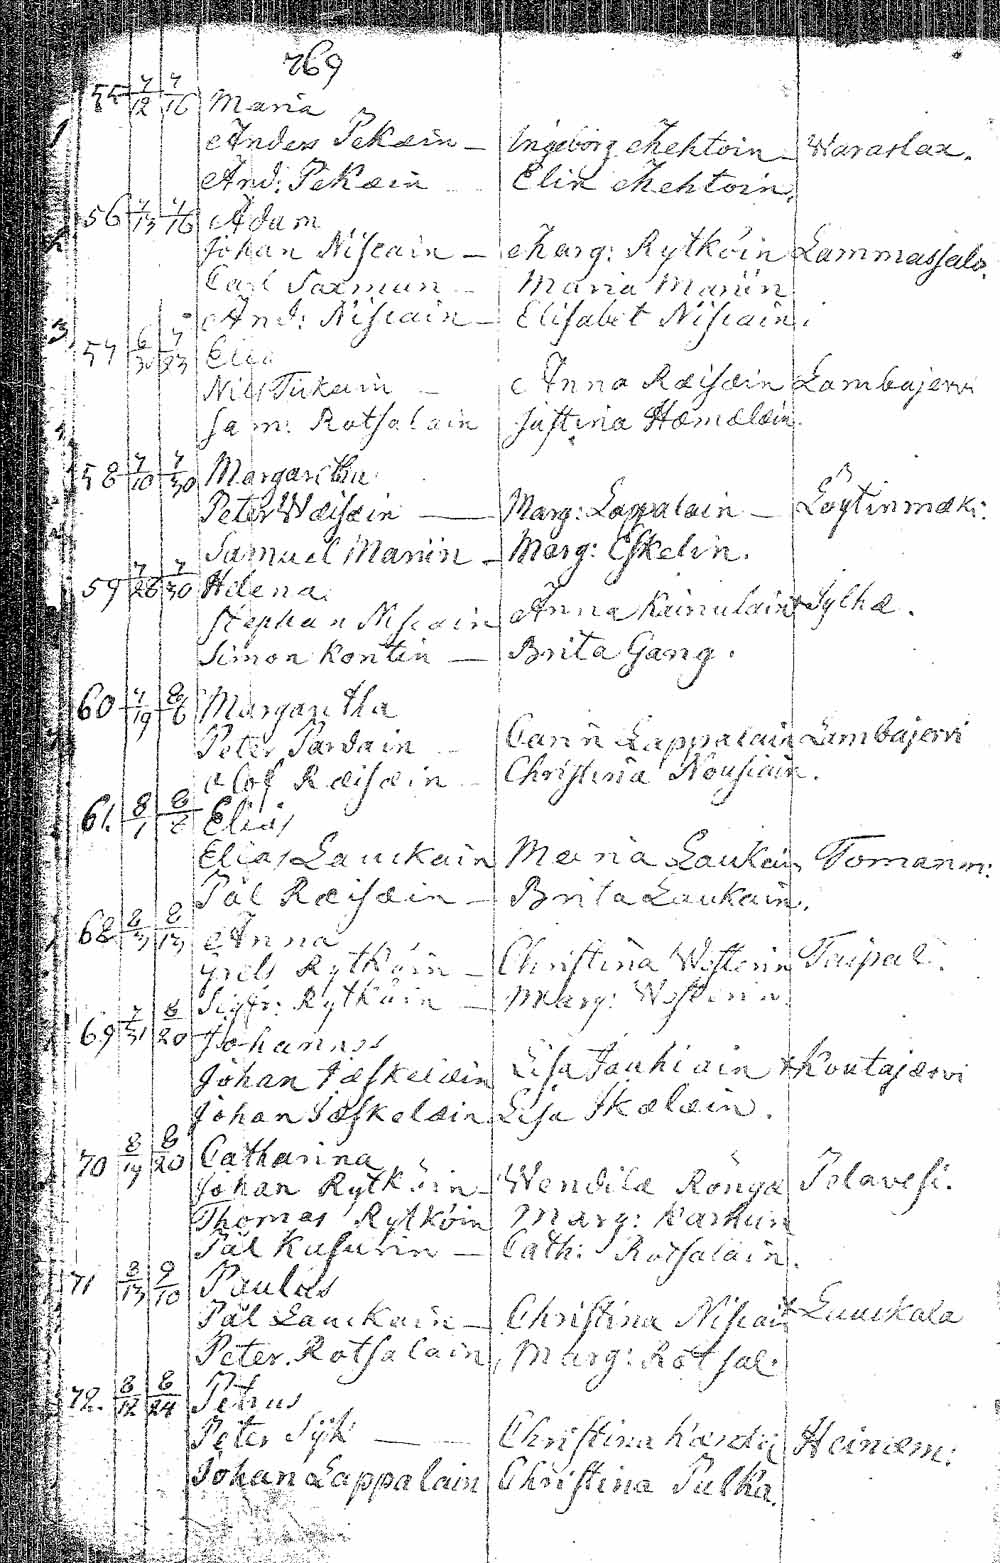 769
55 7/12 7/16 Maria
Anders Pekæin – Ingeborg Mehtoin – Waraslax.
And: Pekæin Elin Mehtoin.
56 7/13 7/16 Adam
Johan Niscain – Marg: Rytköin Lammassalo.
Carl Saxmun Maria Manin
And: Niscain – Elisabet Niscain.
57 6/30 7/23 Elia
Nils Tukain – Anna Ræisæin Lambajervi
Sam: Rotsalain Justina Hæmælæin.
58 7/10 7/30 Margaretha
Peter Wæisæin — Marg: Lappalain – Löytinmæki:
Samuel Manin – Marg: Eskelin.
59 7/26 7/30 Helena.
Stephan Niscain Anna Kainulain Sylhæ.
Simon Kontin – Brita Gang.
60 7/19 8/6 Margaretha
Peter Pardain Carin Lappalain Lambajervi
Olof Ræisæin – Christina Nousiain.
61. 8/1 8/6 Elias
Elias Lauckain Maria Laukain Tomanm:
Pål Ræisæin – Brita Laukain.
68 8/3 8/13 Anna
Grels Rytköin – Christina Westerin Taipal.
Sigfr: Rytköin – Marg: Westerin.
69 7/31 8/20 Johannes
Johan Jæskelæin Lisa Jauhiain Koutajærvi
Johan Jæskelæin Lisa Ikælæin.
70 8/19 8/20 Catharina
Johan Rytköin – Wendila Rönga Pelavesi.
Thomas Rytköin Marg: Karhun
Pål Kusurin – Cath: Rotsalain.
71 8/13 9/10 Paulus
Pål Lauckain – Christina Niscain Lauckala
Peter Rotsalain, Marg: Rotsal.
72. 8/12 8/24 Petrus
Peter Syk — Christina Heinæm:
Johan Lappalain Christina Pulka.